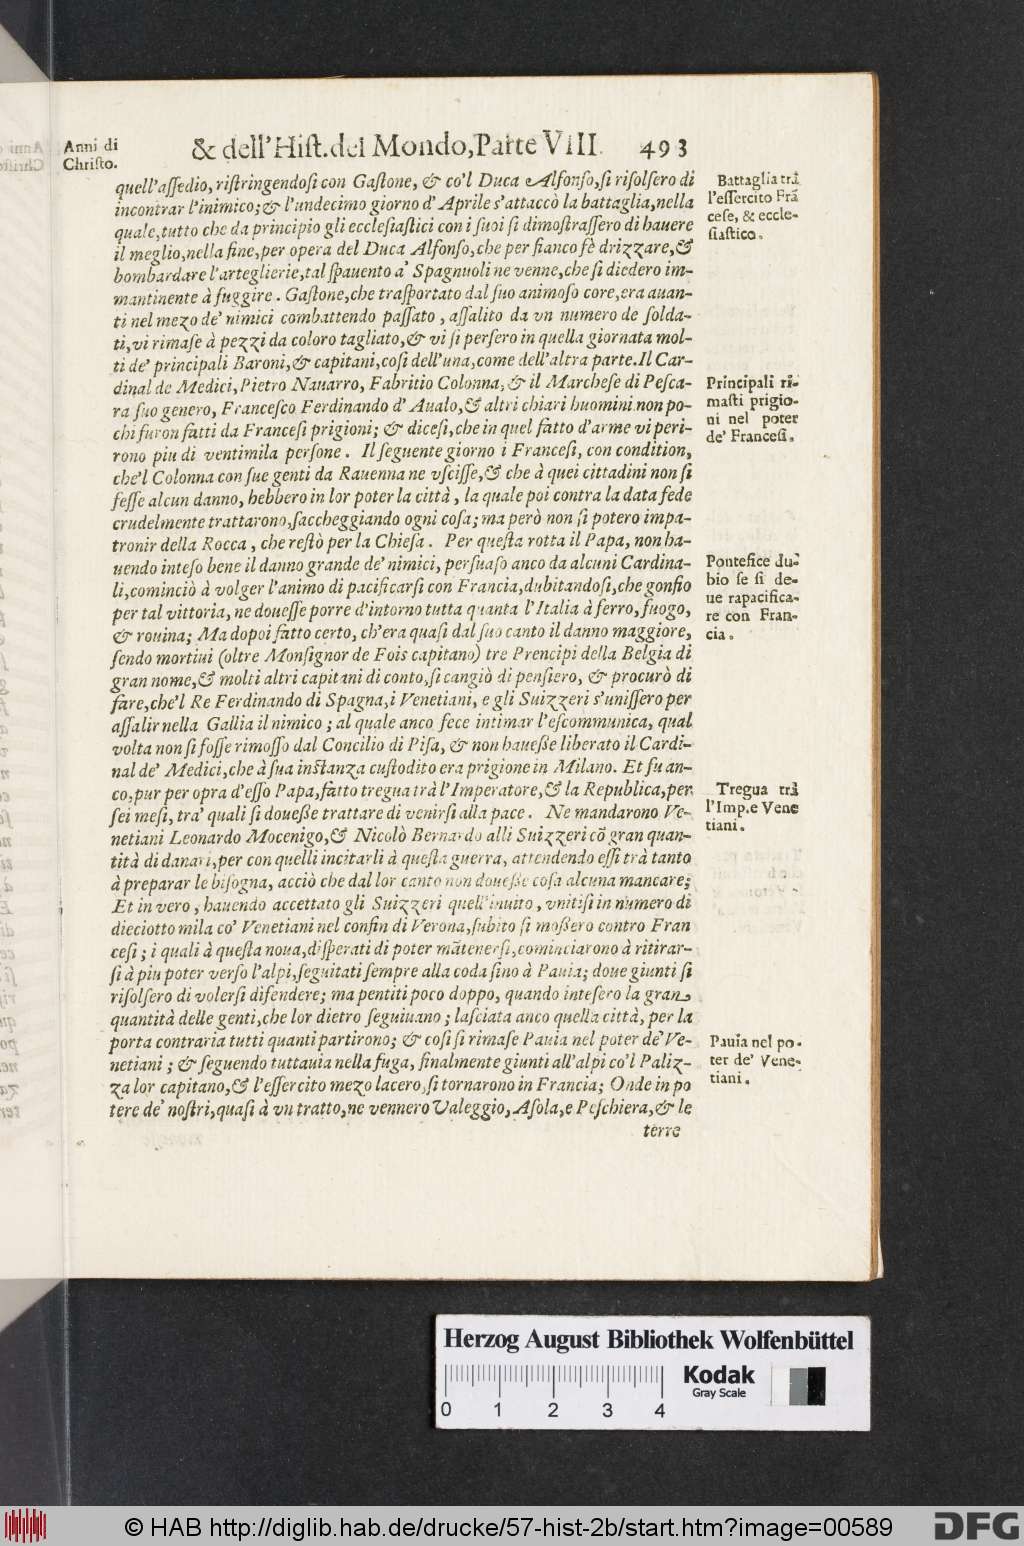 Anni di
Christo.
& dell'Hist. del Mondo, Parte VIII. 493
quell'assedio, ristringendosi con Gastone, & co'l Duca Alfonso, si risolsero di
incontrar l'inimico; & l'undecimo giorno d'Aprile s'attaccò la battaglia, nella
quale, tutto che da principio gli ecclesiastici con i suoi si dimostrassero di hauere
il meglio, nella fine, per opera del Duca Alfonso, che per fianco fè drizzare, &
bombardare l'arteglierie, tal spauento a' Spagnuoli ne venne, che si diedero im-
mantinente à fuggire. Gastone, che trasportato dal suo animoso core, era auan-
ti nel mezo de' nimici combattendo passato, assalito da vn numero de solda-
ti, vi rimase à pezzi da coloro tagliato, & vi si persero in quella giornata mol-
ti de' principali Baroni, & capitani, cosi dell'una, come dell'altra parte. Il Car-
dinal de Medici, Pietro Nauarro, Fabritio Colonna, & il Marchese di Pesca-
ra suo genero, Francesco Ferdinando d'Aualo, & altri chiari huomini non po-
chi furon fatti da Francesi prigioni; & dicesi, che in quel fatto d'arme vi peri-
rono piu di ventimila persone. Il seguente giorno i Francesi, con condition,
che'l Colonna con sue genti da Rauenna ne vscisse, & che à quei cittadini non si
fesse alcun danno, hebbero in lor poter la città, la quale poi contra la data fede
crudelmente trattarono, saccheggiando ogni cosa; ma però non si potero impa-
tronir della Rocca, che restò per la Chiesa. Per questa rotta il Papa, non ha-
uendo inteso bene il danno grande de' nimici, persuaso anco da alcuni Cardina-
li, cominciò à volger l'animo di pacificarsi con Francia, dubitandosi, che gonfio
per tal vittoria, ne douesse porre d'intorno tutta quanta l'Italia à ferro, fuogo,
& rouina; Ma dopoi fatto certo, ch'era quasi dal suo canto il danno maggiore,
sendo mortiui (oltre Monsignor de Fois capitano) tre Prencipi della Belgia di
gran nome, & molti altri capitani di conto, si cangiò di pensiero, & procurò di
fare, che'l Re Ferdinando di Spagna, i Venetiani, e gli Suizzeri s'unissero per
assalir nella Gallia il nimico; al quale anco fece intimar l'escommunica, qual
volta non si fosse rimosso dal Concilio di Pisa, & non hauesse liberato il Cardi-
nal de' Medici, che à sua instanza custodito era prigione in Milano. Et fu an-
co, pur per opra d'esso Papa, fatto tregua trà l'Imperatore, & la Republica, per
sei mesi, tra' quali si douesse trattare di venirsi alla pace. Ne mandarono Ve-
netiani Leonardo Mocenigo, & Nicolò Bernardo alli Suizzeri cō gran quan-
tità di danari, per con quelli incitarli à questa guerra, attendendo essi trà tanto
à preparar le bisogna, acciò che dal lor canto non douesse cosa alcuna mancare;
Et in vero, hauendo accettato gli Suizzeri quell'inuito, vnitisi in numero di
dieciotto mila co' Venetiani nel confin di Verona, subito si mossero contro Fran
cesi; i quali à questa noua, disperati di poter mātenersi, cominciarono à ritirar-
si à piu poter verso l'alpi, seguitati sempre alla coda sino à Pauia; doue giunti si
risolsero di volersi difendere; ma pentiti poco doppo, quando intesero la gran
quantità delle genti, che lor dietro seguiuano; lasciata anco quella città, per la
porta contraria tutti quanti partirono; & cosi si rimase Pauia nel poter de' Ve-
netiani; & seguendo tuttauia nella fuga, finalmente giunti all'alpi co'l Paliz-
za lor capitano, & l'essercito mezo lacero, si tornarono in Francia; Onde in po
tere de' nostri, quasi à vn tratto, ne vennero Valeggio, Asola, e Peschiera, & le
terre
Battaglia trà
l'essercito Frā
cese, & eccle-
siastico.
Principali ri-
masti prigio-
ni nel poter
de' Francesi.
Pontefice du-
bio se si de-
ue rapacifica-
re con Fran-
cia.
Tregua trà
l'Imp. e Vene
tiani.
Pauia nel po-
ter de' Vene-
tiani.
Herzog August Bibliothek Wolfenbüttel
Kodak
Gray Scale
0 1 2 3 4
© HAB http://diglib.hab.de/drucke/57-hist-2b/start.htm?image=00589
DFG